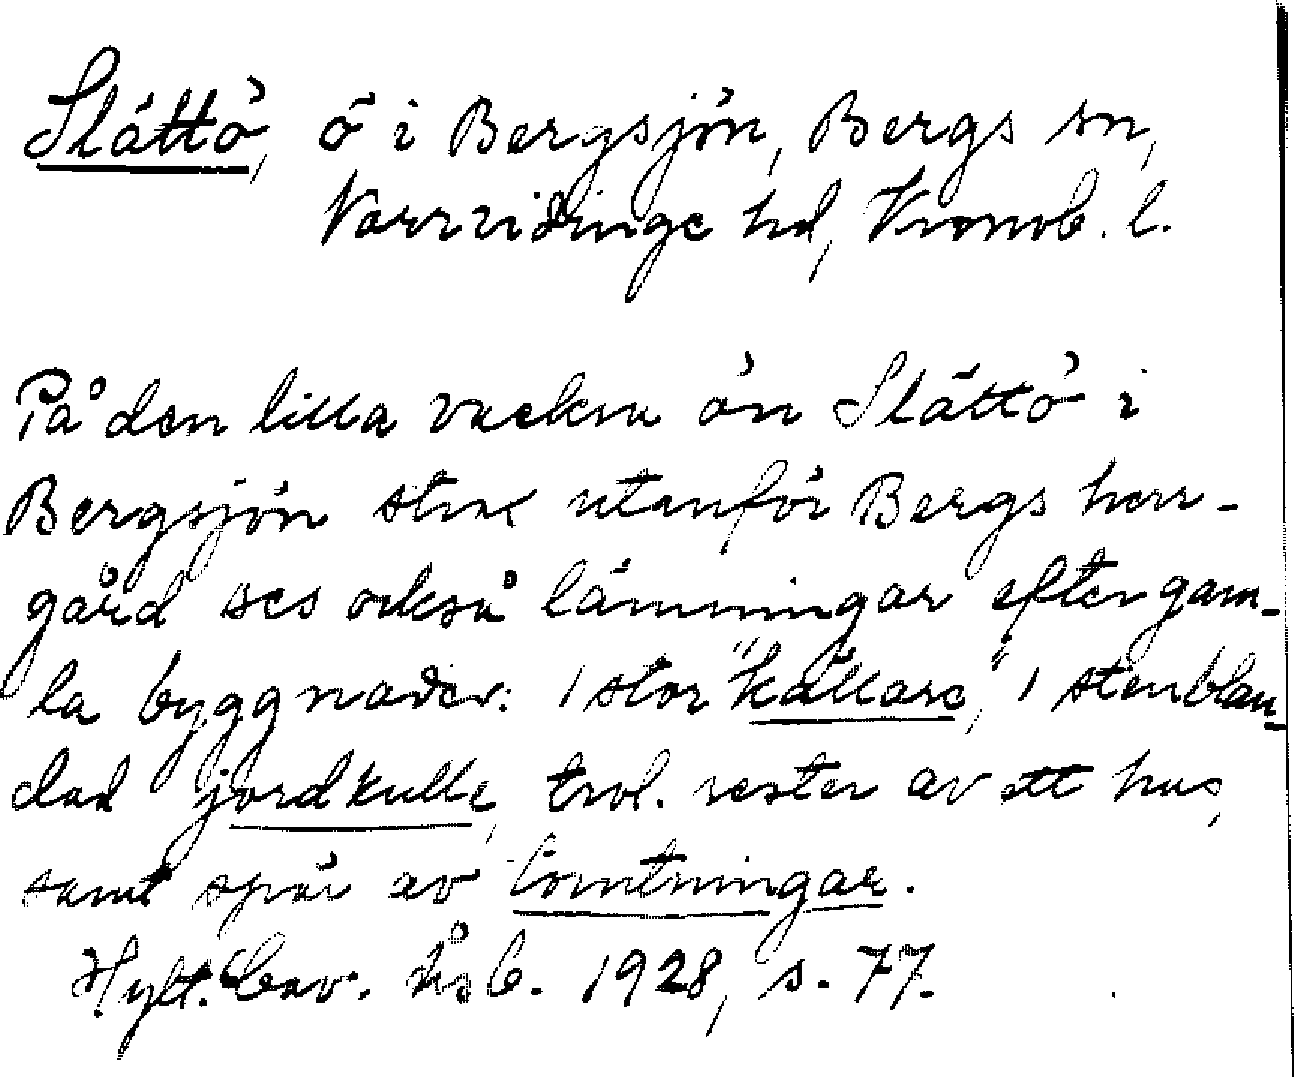 Slättö, ö i Bergsjön, Bergs sn,
Norrvidinge hd, Kronob. l.
På den lilla vackra ön Slättö i
Bergsjön strax utanför Bergs herr-
gård ses också lämningar efter gam-
la byggnader: 1 stor "källare," 1 stenblan-
dad jordkulle, trol. rester av ett hus,
samt spår av tomtningar.
Hylt. Cav. årsb. 1928, s. 77.